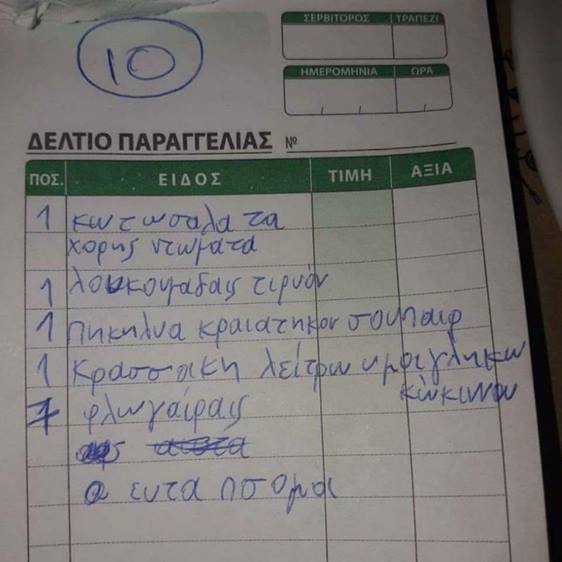 10
ΣΕΡΒΙΤΟΡΟΣ ΤΡΑΠΕΖΙ
ΗΜΕΡΟΜΗΝΙΑ ΩΡΑ
ΔΕΛΤΙΟ ΠΑΡΑΓΓΕΛΙΑΣ Νº
ΠΟΣ. ΕΙΔΟΣ ΤΙΜΗ ΑΞΙΑ
1 κωτωσαλα τα
χορης ντωματα
1 λουκουμαδαις τιρυόν
1 πηκηλυα κραιατηκον σουπαιρ
1 κρασσακη λείτρω ημοιγληκω
κώκινου
7 φλωγαίραις
ευτα ποσομαι